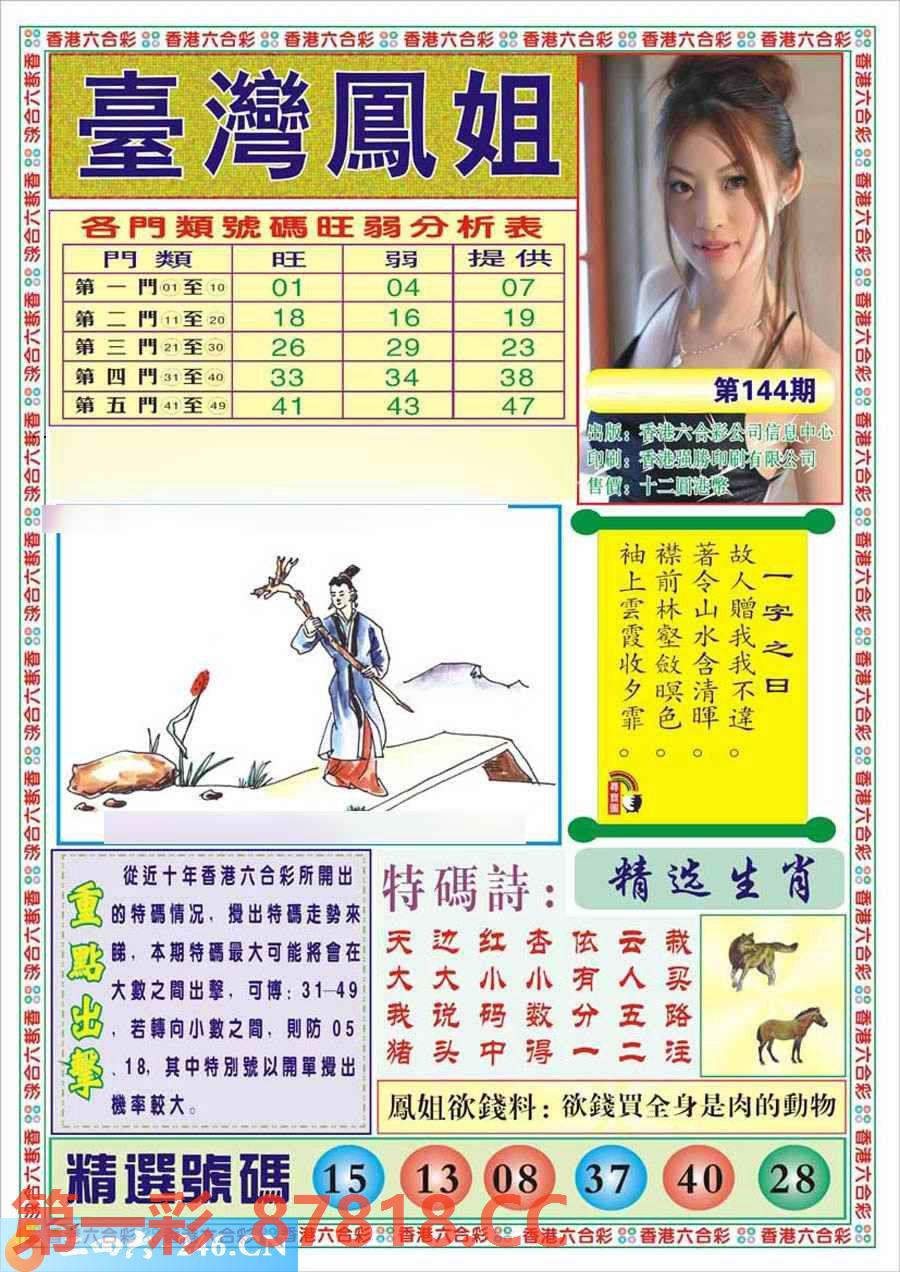 香港六合彩 香港六合彩 香港六合彩 香港六合彩 香港六合彩 香港六合彩 香港六合彩
臺灣鳳姐
各門類號碼旺弱分析表
門類 旺 弱 提供
第一門01至10 01 04 07
第二門11至20 18 16 19
第三門21至30 26 29 23
第四門31至40 33 34 38
第五門41至49 41 43 47
第144期
出版：香港六合彩公司信息中心
印刷：香港强勝印刷有限公司
售價：十二圓港幣
一字之曰
故人贈我我不違。
著令山水含清暉。
襟前林壑斂暝色。
袖上雲霞收夕霏。
尋寶圖
重點出擊
從近十年香港六合彩所開出
的特碼情况，攪出特碼走勢來
睇，本期特碼最大可能將會在
大數之間出擊，可博：31—49
，若轉向小數之間，則防 05
、18，其中特別號以開單攪出
機率較大。
特碼詩：
天边红杏依云栽
大大小小有人买
我说码数分五路
猪头中得一二注
精选生肖
鳳姐欲錢料：欲錢買全身是肉的動物
精選號碼 15 13 08 37 40 28
第一彩 87818.CC
246.CN
香港六合彩 香港六合彩 香港六合彩 香港六合彩 香港六合彩